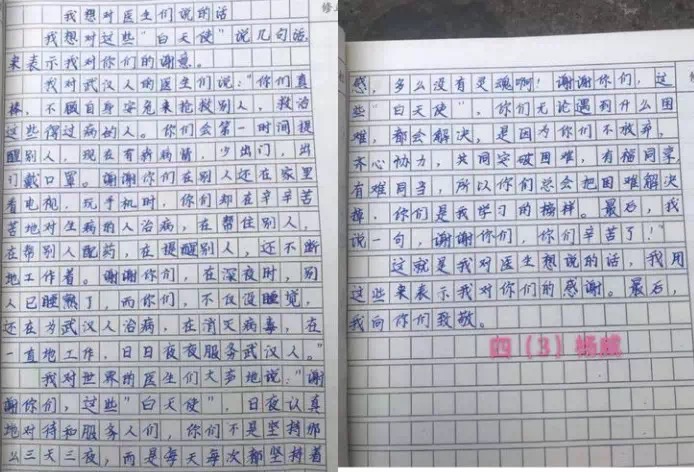 我想对医生们说的话
我想对这些"白天使"说几句话,
来表示我对你们的谢意。
我对武汉人的医生们说:"你们真
棒,不顾自身安危来抢救别人,救治
这些得过病的人。你们会第一时间提
醒别人,现在有病情,少出门,出
门戴口罩。谢谢你们在别人还在家里
看电视,玩手机时,你们却在辛辛苦
苦地对生病的人治病,在帮住别人,
在帮别人配药,在提醒别人,还不断
地工作着。谢谢你们,在深夜时,别
人已睡熟了,而你们,不仅没睡觉,
还在为武汉人治病,在消灭病毒,在
一直地工作,日日夜夜服务武汉人。"
我对世界的医生们大声地说:"谢
谢你们,这些"白天使",日夜认真
地对待和服务人们,你们不是坚持那
么三天三夜,而是每天每次都坚持着
感,多么没有灵魂啊!谢谢你们,这
些"白天使",你们无论遇到什么困
难,都会解决,是因为你们不放弃,
齐心协力,共同突破困难,有福同享
有难同当,所以你们总会把困难解决
掉,你们是我学习的榜样。最后,我
说一句,谢谢你们,你们辛苦了!"
这就是我对医生想说的话,我用
这些来表示我对你们的感谢。最后,
我向你们致敬。
四(3)杨